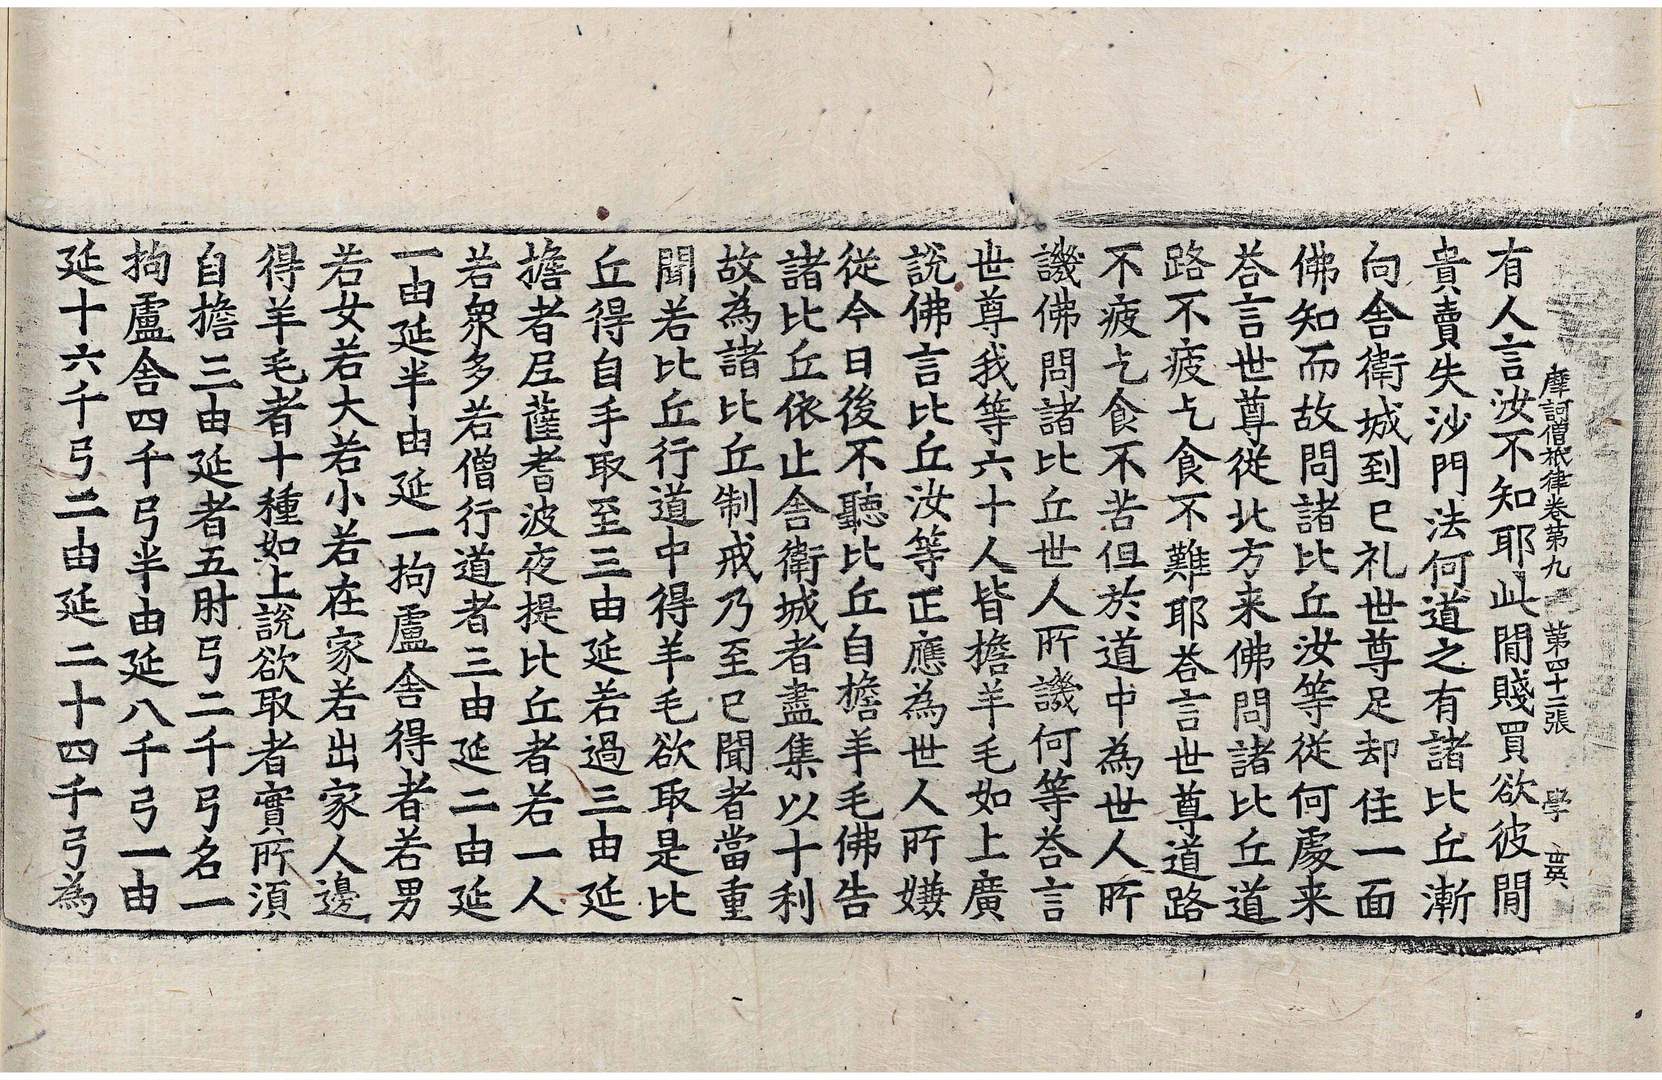 摩訶僧祇律卷第九 第四十二張 學 英
有人言汝不知耶此間賤買欲彼間
貴賣失沙門法何道之有諸比丘漸
向舍衛城到已礼世尊足却住一面
佛知而故問諸比丘汝等從何處来
荅言世尊從北方来佛問諸比丘道
路不疲乞食不難耶荅言世尊道路
不疲乞食不苦但於道中為世人所
譏佛問諸比丘世人所譏何等荅言
世尊我等六十人皆擔羊毛如上廣
說佛言比丘汝等正應為世人所嫌
從今日後不聽比丘自擔羊毛佛告
諸比丘依止舍衛城者盡集以十利
故為諸比丘制戒乃至已聞者當重
聞若比丘行道中得羊毛欲取是比
丘得自手取至三由延若過三由延
擔者尼薩耆波夜提比丘者若一人
若衆多若僧行道者三由延二由延
一由延半由延一拘盧舍得者若男
若女若大若小若在家若出家人邊
得羊毛者十種如上說欲取者實所湏
自擔三由延者五肘弓二千弓名一
拘盧舍四千弓半由延八千弓一由
延十六千弓二由延二十四千弓為